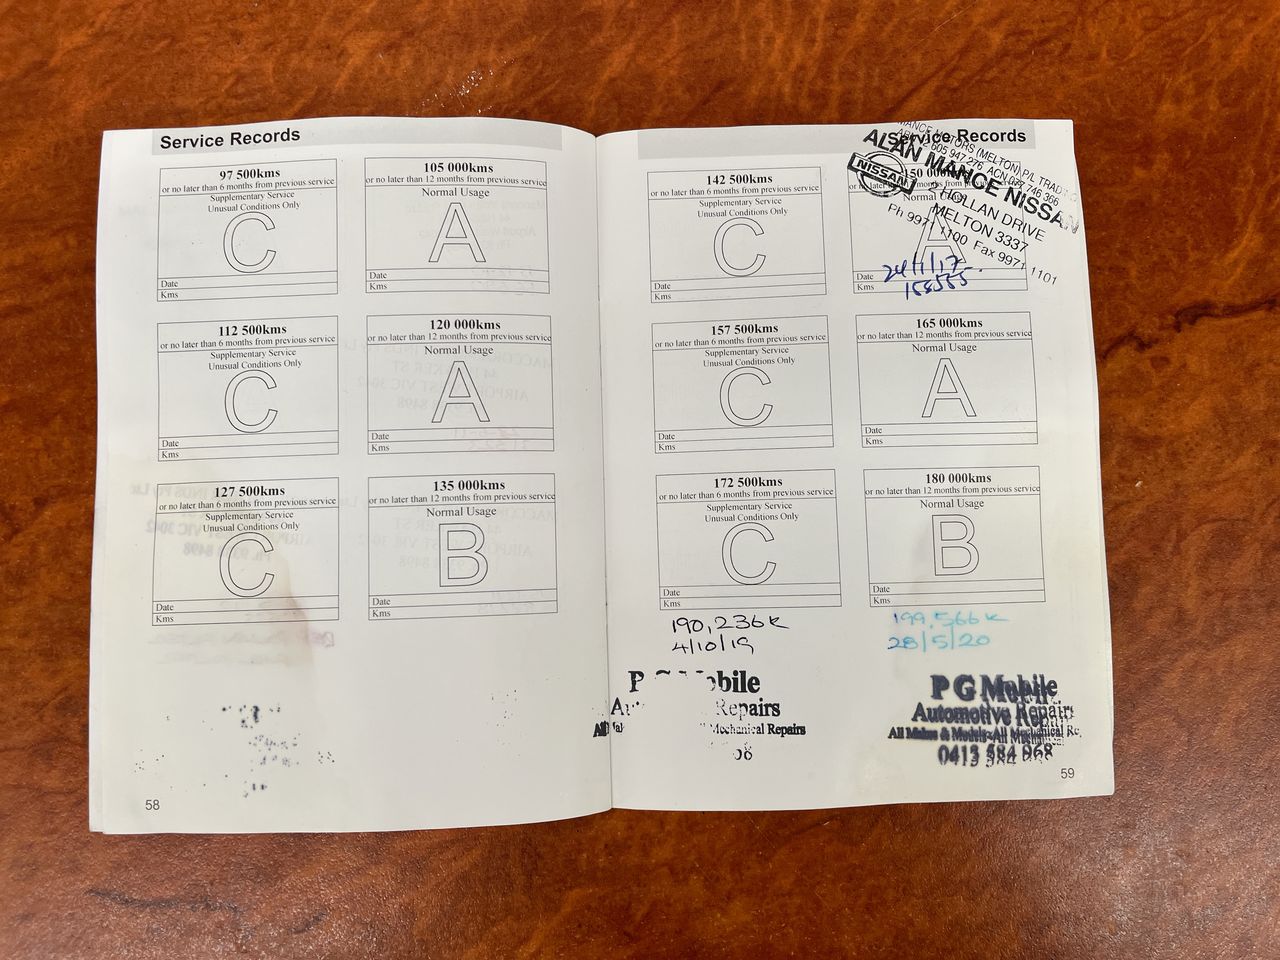 Service Records
97 500kms
or no later than 6 months from previous service
Supplementary Service
Unusual Conditions Only
C
Date
Kms
105 000kms
or no later than 12 months from previous service
Normal Usage
A
Date
Kms
112 500kms
or no later than 6 months from previous service
Supplementary Service
Unusual Conditions Only
C
Date
Kms
120 000kms
or no later than 12 months from previous service
Normal Usage
A
Date
Kms
127 500kms
or no later than 6 months from previous service
Supplementary Service
Unusual Conditions Only
C
Date
Kms
135 000kms
or no later than 12 months from previous service
Normal Usage
B
Date
Kms
58
Service Records
142 500kms
or no later than 6 months from previous service
Supplementary Service
Unusual Conditions Only
C
Date
Kms
ALAN MANCE NISSAN
NISSAN
2 HOLLAN DRIVE
MELTON 3337
Ph 9971 1100 Fax 9971 1101
Normal
A
Date
Kms
157 500kms
or no later than 6 months from previous service
Supplementary Service
Unusual Conditions Only
C
Date
Kms
165 000kms
or no later than 12 months from previous service
Normal Usage
A
Date
Kms
172 500kms
or no later than 6 months from previous service
Supplementary Service
Unusual Conditions Only
C
Date
Kms
180 000kms
or no later than 12 months from previous service
Normal Usage
B
Date
Kms
190,236k
4/10/19
Repairs
Mechanical Repairs
199,566k
28/5/20
P G Mobile
Automotive Repairs
All Makes & Models-All Mechanical
0413 584 968
59